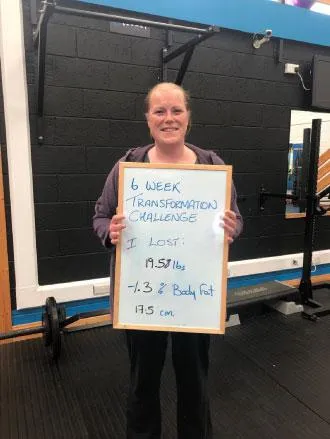 6 WEEK
TRANSFORMATION
CHALLENGE
I LOST:
19.58 lbs
-1.3 % Body Fat
17.5 cm.